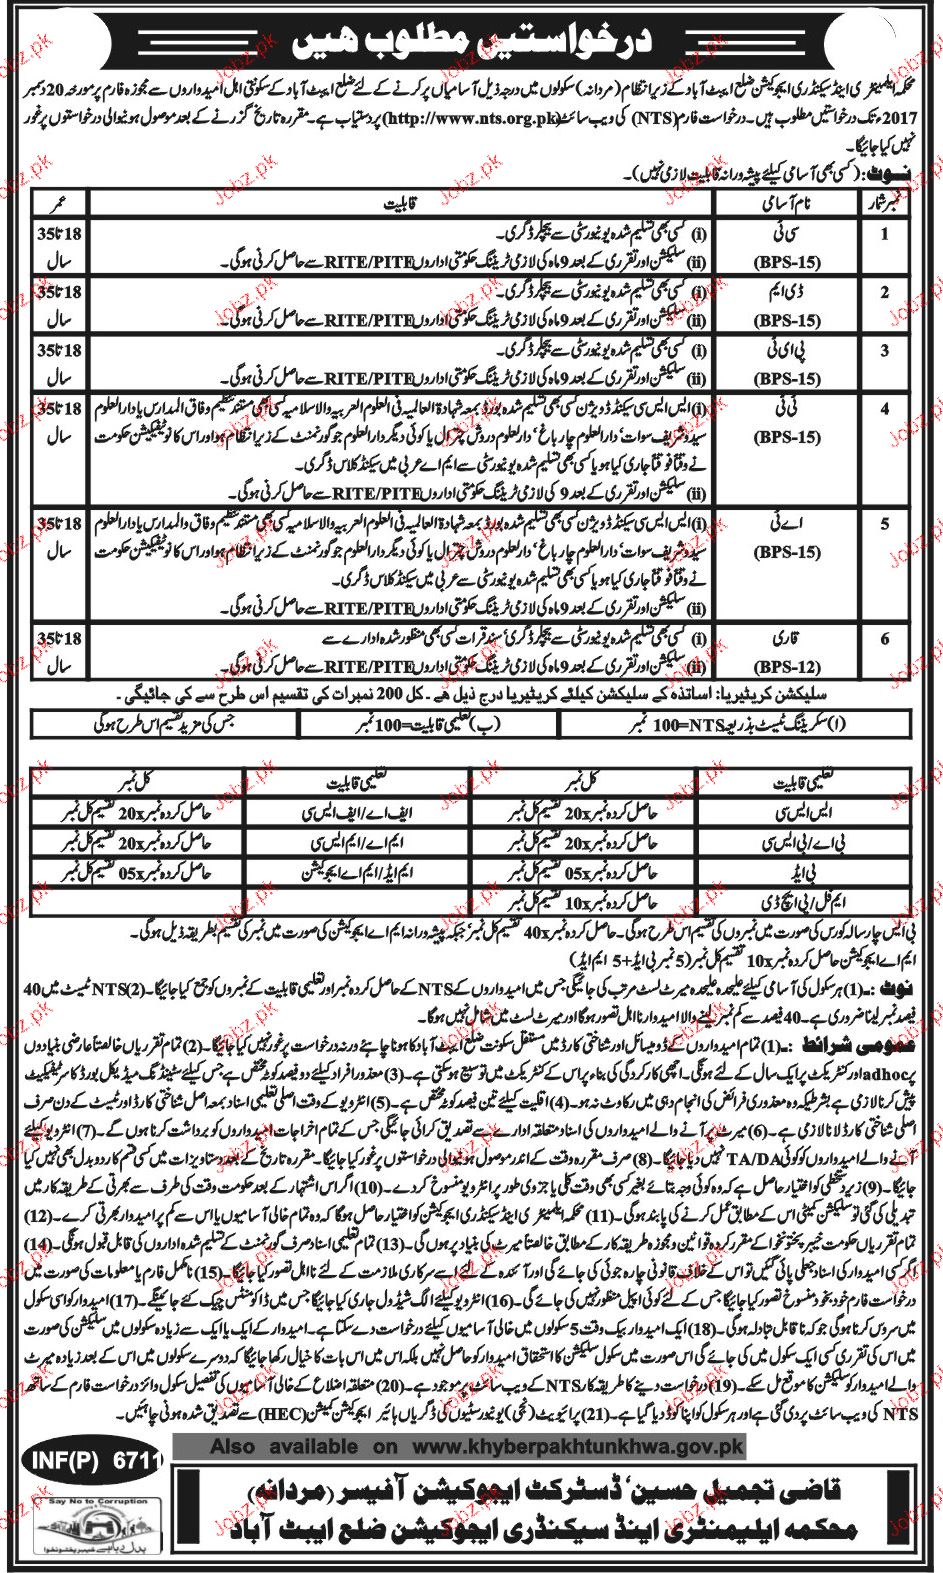 درخواستیں مطلوب ہیں
محکمہ ایلیمنٹری اینڈ سیکنڈری ایجوکیشن ضلع ایبٹ آباد کے زیر انتظام (مردانہ) سکولوں میں درجہ ذیل آسامیاں پر کرنے کے لئے ضلع ایبٹ آباد کے سکونتی اہل امیدواروں سے مجوزہ فارم پر مورخہ 20 دسمبر
2017ء تک درخواستیں مطلوب ہیں۔ درخواست فارم (NTS) کی ویب سائٹ (http://www.nts.org.pk) پر دستیاب ہے۔ مقررہ تاریخ گزرنے کے بعد موصول ہونیوالی درخواستوں پر غور
نہیں کیا جائیگا۔
نوٹ: (کسی بھی آسامی کیلئے پیشہ ورانہ قابلیت لازمی نہیں)۔
نمبر شمار نام آسامی قابلیت عمر
1 سی ٹی (i) کسی بھی تسلیم شدہ یونیورسٹی سے بیچلر ڈگری۔ 18 تا 35
(BPS-15) (ii) سلیکشن اور تقرری کے بعد 9 ماہ کی لازمی ٹریننگ حکومتی اداروں RITE/PITE سے حاصل کرنی ہوگی۔ سال
2 ڈی ایم (i) کسی بھی تسلیم شدہ یونیورسٹی سے بیچلر ڈگری۔ 18 تا 35
(BPS-15) (ii) سلیکشن اور تقرری کے بعد 9 ماہ کی لازمی ٹریننگ حکومتی اداروں RITE/PITE سے حاصل کرنی ہوگی۔ سال
3 پی ای ٹی (i) کسی بھی تسلیم شدہ یونیورسٹی سے بیچلر ڈگری۔ 18 تا 35
(BPS-15) (ii) سلیکشن اور تقرری کے بعد 9 ماہ کی لازمی ٹریننگ حکومتی اداروں RITE/PITE سے حاصل کرنی ہوگی۔ سال
4 ٹی ٹی (i) ایس ایس سی سیکنڈ ڈویژن کسی بھی تسلیم شدہ بورڈ بمعہ شہادۃ العالمیہ فی العلوم العربیہ والاسلامیہ کسی بھی مستند تنظیم وفاق المدارس یا دارالعلوم 18 تا 35
(BPS-15) سیدو شریف سوات، دارالعلوم چار باغ، دارالعلوم دروش چترال یا کوئی دیگر دارالعلوم جو گورنمنٹ کے زیر انتظام ہو اور اس کا نوٹیفکیشن حکومت سال
نے وقتاً فوقتاً جاری کیا ہو یا کسی بھی تسلیم شدہ یونیورسٹی سے ایم اے عربی میں سیکنڈ کلاس ڈگری۔
(ii) سلیکشن اور تقرری کے بعد 9 کی لازمی ٹریننگ حکومتی اداروں RITE/PITE سے حاصل کرنی ہوگی۔
5 اے ٹی (i) ایس ایس سی سیکنڈ ڈویژن کسی بھی تسلیم شدہ بورڈ بمعہ شہادۃ العالمیہ فی العلوم العربیہ والاسلامیہ کسی بھی مستند تنظیم وفاق والمدارس یا دارالعلوم 18 تا 35
(BPS-15) سیدو شریف سوات، دارالعلوم چار باغ، دارالعلوم دروش چترال یا کوئی دیگر دارالعلوم جو گورنمنٹ کے زیر انتظام ہو اور اس کا نوٹیفکیشن حکومت سال
نے وقتاً فوقتاً جاری کیا ہو یا کسی بھی تسلیم شدہ یونیورسٹی سے عربی میں سیکنڈ کلاس ڈگری۔
(ii) سلیکشن اور تقرری کے بعد 9 ماہ کی لازمی ٹریننگ حکومتی اداروں RITE/PITE سے حاصل کرنی ہوگی۔
6 قاری (i) کسی بھی تسلیم شدہ یونیورسٹی سے بیچلر ڈگری، سند قرات کسی بھی منظور شدہ ادارے سے 18 تا 35
(BPS-12) (ii) سلیکشن اور تقرری کے بعد 9 ماہ کی لازمی ٹریننگ حکومتی اداروں RITE/PITE سے حاصل کرنی ہوگی۔ سال
سلیکشن کریٹیریا: اساتذہ کے سلیکشن کیلئے کریٹیریا درج ذیل ھے۔ کل 200 نمبرات کی تقسیم اس طرح سے کی جائیگی۔
(ا) سکریننگ ٹیسٹ بذریعہ NTS=100 نمبر (ب) تعلیمی قابلیت=100 نمبر جس کی مزید تقسیم اس طرح ہوگی
تعلیمی قابلیت کل نمبر تعلیمی قابلیت کل نمبر
ایس ایس سی حاصل کردہ نمبر 20x تقسیم کل نمبر ایف اے/ایف ایس سی حاصل کردہ نمبر 20x تقسیم کل نمبر
بی اے/بی ایس سی حاصل کردہ نمبر 20x تقسیم کل نمبر ایم اے/ایم ایس سی حاصل کردہ نمبر 20x تقسیم کل نمبر
بی ایڈ حاصل کردہ نمبر 05x تقسیم کل نمبر ایم ایڈ/ایم اے ایجوکیشن حاصل کردہ نمبر 05x تقسیم کل نمبر
ایم فل/پی ایچ ڈی حاصل کردہ نمبر 10x تقسیم کل نمبر
بی ایس چار سالہ کورس کی صورت میں نمبروں کی تقسیم اس طرح ہوگی۔ حاصل کردہ نمبر 40x تقسیم کل نمبر، جبکہ پیشہ ورانہ ایم اے ایجوکیشن کی صورت میں نمبر کی تقسیم بطریقہ ذیل ہوگی۔
ایم اے ایجوکیشن حاصل کردہ نمبر 10x تقسیم کل نمبر (5 نمبر بی ایڈ+5 ایم ایڈ)
نوٹ:۔ (1) ہر سکول کی آسامی کیلئے علیحدہ علیحدہ میرٹ لسٹ مرتب کی جائیگی جس میں امیدواروں کے NTS کے حاصل کردہ نمبر اور تعلیمی قابلیت کے نمبروں کو جمع کیا جائیگا۔ (2) NTS ٹیسٹ میں 40
فیصد نمبر لینا ضروری ہے۔ 40 فیصد سے کم نمبر لینے والا امیدوار نا اہل تصور ہوگا اور میرٹ لسٹ میں شامل نہیں ہوگا۔
عمومی شرائط:۔ (1) تمام امیدواروں کے ڈومیسائل اور شناختی کارڈ میں مستقل سکونت ضلع ایبٹ آباد کا ہونا چاہئے ورنہ درخواست پر غور نہیں کیا جائیگا۔ (2) تمام تقرریاں خالصتاً عارضی بنیادوں
پر adhoc اور کنٹریکٹ پر ایک سال کے لئے ہونگی۔ اچھی کارکردگی کی بناء پر اس کے کنٹریکٹ میں توسیع ہو سکتی ہے۔ (3) معذور افراد کیلئے دو فیصد کوٹہ مختص ہے جس کیلئے سٹینڈنگ میڈیکل بورڈ کا سرٹیفکیٹ
پیش کرنا لازمی ہے بشرطیکہ وہ معذوری فرائض کی انجام دہی میں رکاوٹ نہ ہو۔ (4) اقلیت کیلئے تین فیصد کوٹہ مختص ہے۔ (5) انٹرویو کے وقت اصلی تعلیمی اسناد بمعہ اصل شناختی کارڈ اور ٹیسٹ کے دن صرف
اصلی شناختی کارڈ لانا لازمی ہے۔ (6) میرٹ پر آنے والے امیدواروں کی اسناد متعلقہ ادارے سے تصدیق کرائی جائیگی جس کے تمام اخراجات امیدواروں کو برداشت کرنا ہوں گے۔ (7) انٹرویو کیلئے
آنے والے امیدواروں کو کوئی TA/DA نہیں دیا جائیگا۔ (8) صرف مقررہ وقت کے اندر موصول ہونیوالی درخواستوں پر غور کیا جائیگا۔ مقررہ تاریخ کے بعد دستاویزات میں کسی قسم کا رد و بدل بھی نہیں کیا
جائیگا۔ (9) زیر دستخطی کو اختیار حاصل ہے کہ وہ کوئی وجہ بتائے بغیر کسی بھی وقت کلی یا جزوی طور پر انٹرویو منسوخ کر دے۔ (10) اگر اس اشتہار کے بعد حکومت وقت کی طرف سے بھرتی کے طریقہ کار میں
تبدیلی کی گئی تو سلیکشن کمیٹی اس کے مطابق عمل کرنے کی پابند ہوگی۔ (11) محکمہ ایلیمنٹری اینڈ سیکنڈری ایجوکیشن کو اختیار حاصل ہوگا کہ وہ تمام خالی آسامیوں یا اس سے کم پر امیدوار بھرتی کرے۔ (12)
تمام تقرریاں حکومت خیبر پختونخوا کے مقرر کردہ قوانین و مجوزہ طریقہ کار کے مطابق خالصتاً میرٹ کی بنیاد پر ہوں گی۔ (13) تمام تعلیمی اسناد صرف گورنمنٹ کے تسلیم شدہ اداروں کی قابل قبول ہونگی۔ (14)
اگر کسی امیدوار کی اسناد جعلی پائی گئیں تو اس کے خلاف قانونی چارہ جوئی کی جائے گی اور آئندہ کے لئے اسے سرکاری ملازمت کے لئے نا اہل تصور کیا جائیگا۔ (15) نامکمل فارم یا معلومات کی صورت میں
درخواست فارم خود بخود منسوخ تصور کیا جائیگا جس کے لئے کوئی اپیل منظور نہیں کی جائے گی۔ (16) انٹرویو کیلئے الگ شیڈول جاری کیا جائیگا جس میں ڈاکومنٹس چیک کئے جائینگے۔ (17) امیدوار کو اسی سکول
میں سروس کرنا ہوگی جو کہ ناقابل تبادلہ ہوگی۔ (18) ایک امیدوار بیک وقت 5 سکولوں میں خالی آسامیوں کیلئے درخواست دے سکتا ہے۔ امیدوار کے ایک یا ایک سے زیادہ سکولوں میں سلیکشن کی صورت
میں اس کی تقرری کسی ایک سکول میں کی جائے گی اس صورت میں سکول سلیکشن کا استحقاق امیدوار کو حاصل نہیں بلکہ اس میں اس بات کا خیال رکھا جائیگا کہ دوسرے سکولوں میں اس کے بعد زیادہ میرٹ
والے امیدوار کو سلیکشن کا موقع مل سکے۔ (19) درخواست دینے کا طریقہ کار NTS کے ویب سائٹ پر موجود ہے۔ (20) متعلقہ اضلاع کے خالی آسامیوں کی تفصیل سکول وائز درخواست فارم کے ساتھ
NTS کی ویب سائٹ پر دی گئی ہے اور ہر سکول کو اپنا کوڈ دیا گیا ہے۔ (21) پرائیویٹ (نجی) یونیورسٹیوں کی ڈگریاں ہائیر ایجوکیشن کمیشن (HEC) سے تصدیق شدہ ہونی چاہئیں۔
Also available on www.khyberpakhtunkhwa.gov.pk
INF(P) 6711
Say No to Corruption
قاضی تجمیل حسین، ڈسٹرکٹ ایجوکیشن آفیسر (مردانہ)
محکمہ ایلیمنٹری اینڈ سیکنڈری ایجوکیشن ضلع ایبٹ آباد
Jobz.pk